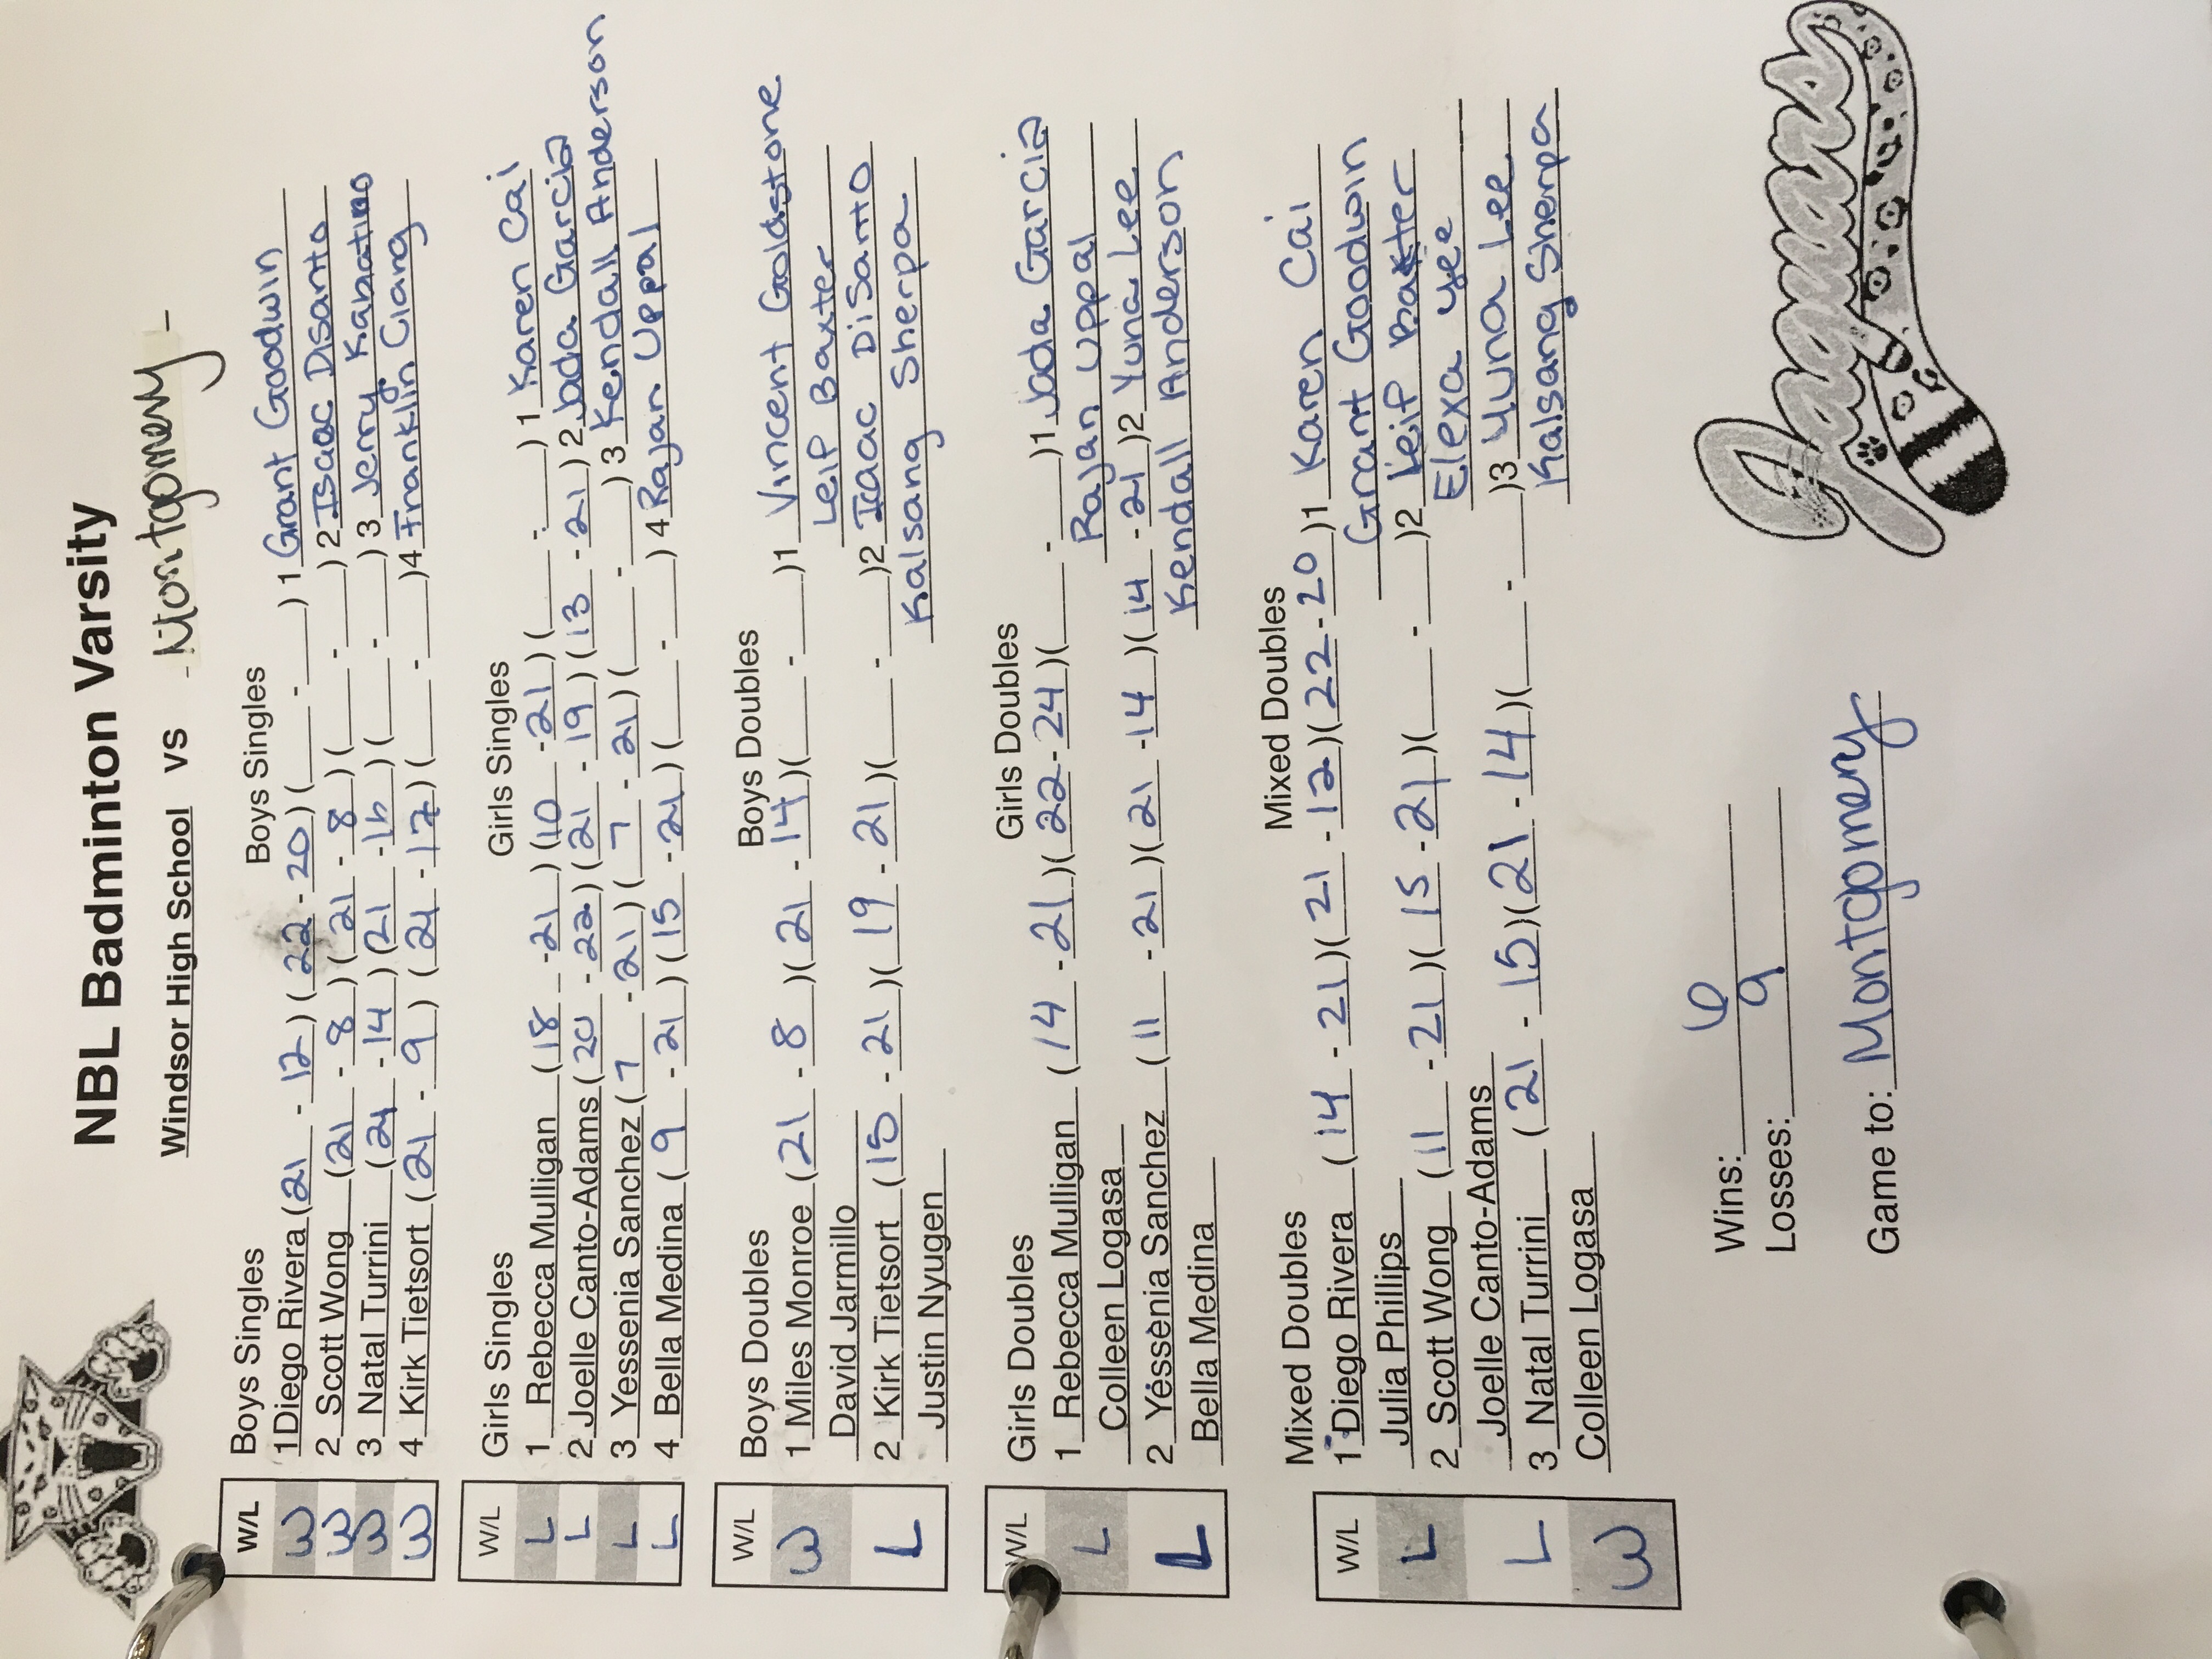 NBL Badminton Varsity
Windsor High School vs Montgomery
W/L
Boys Singles Boys Singles
W 1 Diego Rivera (21 - 12) (22 - 20)( - ) 1 Grant Goodwin
W 2 Scott Wong (21 - 8)(21 - 8)( - )2 Isaac Disanto
W 3 Natal Turrini (21 - 14) (21 - 16)( - ) 3 Jerry Kabatino
W 4 Kirk Tietsort (21 - 9) (21 - 17)( - )4 Franklin Clang
W/L
Girls Singles Girls Singles
L 1 Rebecca Mulligan (18 - 21) (10 - 21)( - ) 1 Karen Cai
L 2 Joelle Canto-Adams (20 - 22) (21 - 19)(13 - 21) 2 Jada Garcia
L 3 Yessenia Sanchez (7 - 21)(7 - 21)( - )3 Kendall Anderson
L 4 Bella Medina (9 - 21)(15 - 21)( - ) 4 Rajan Uppal
W/L
Boys Doubles Boys Doubles
W 1 Miles Monroe (21 - 8)(21 - 14)( - )1 Vincent Goldstone
David Jarmillo Leif Baxter
L 2 Kirk Tietsort (15 - 21)(19 - 21)( - )2 Isaac DiSanto
Justin Nyugen Kalsang Sherpa
W/L
Girls Doubles Girls Doubles
L 1 Rebecca Mulligan (14 - 21)(22 - 24)( - )1 Jada Garcia
Colleen Logasa Rajan Uppal
L 2 Yessenia Sanchez (11 - 21)(21 - 14)(14 - 21)2 Yuna Lee
Bella Medina Kendall Anderson
W/L
Mixed Doubles Mixed Doubles
L 1 Diego Rivera (14 - 21)(21 - 12)(22 - 20)1 Karen Cai
Julia Phillips Grant Goodwin
L 2 Scott Wong (11 - 21)(15 - 21)( - )2 Leif Baxter
Joelle Canto-Adams Elexa Yee
W 3 Natal Turrini (21 - 15)(21 - 14)( - )3 Yuna Lee
Colleen Logasa Kalsang Sherpa
Wins: 6
Losses: 9
Game to: Montgomery
Jaguars